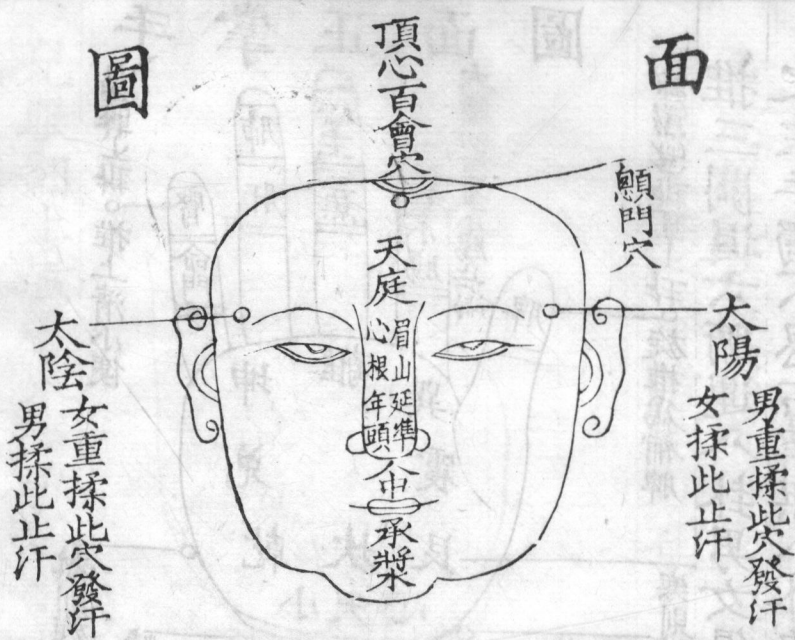 面
圖
頂心百會穴
顖門穴
天庭
眉山延準
心根年䪼
人中
承漿
太陽
男重揉此穴發汗
女揉此止汗
太陰
女重揉此穴發汗
男揉此止汗